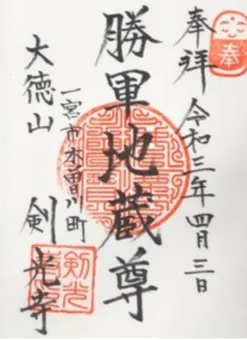 奉拝 令和三年四月三日
勝軍地蔵尊
一宮市木曽川町
大徳山 剣光寺
剣光寺